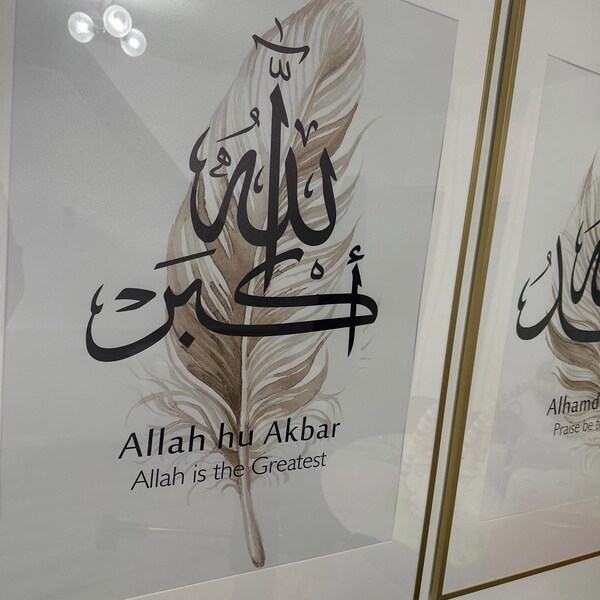 الله
أكبر
Allah hu Akbar
Allah is the Greatest
Alhamd
Praise be